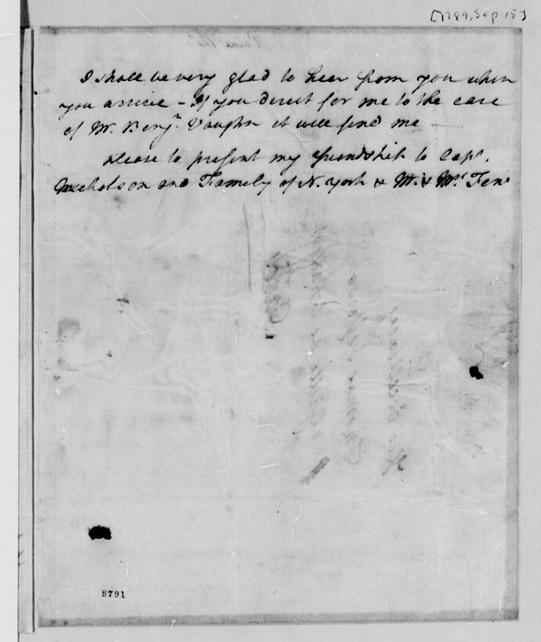 [1789, Sep 15]
I shall be very glad to hear from you when
you arrive - If you direct for me to the care
of Mr. Benjn. Vaughn it will find me
Please to present my friendship to Capt.
Nicholson and Family of N. York & Mr. & Mrs. Few
8791